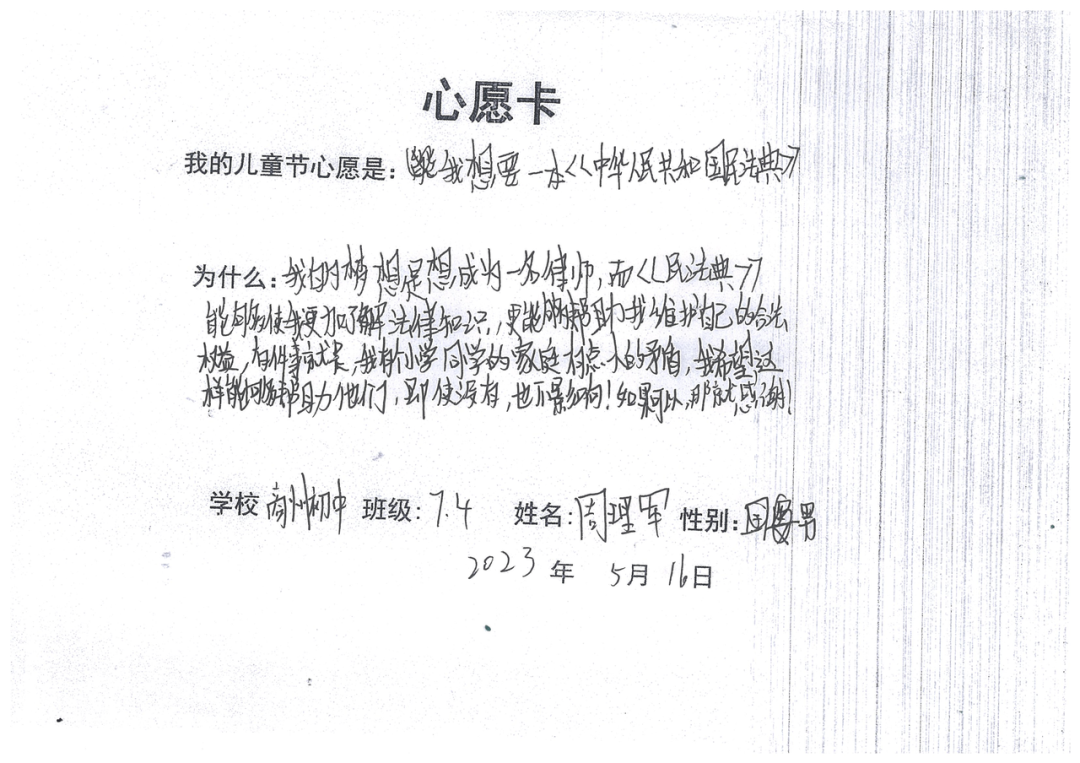 心愿卡
我的儿童节心愿是：我想要一本<<中华人民共和国民法典>>
为什么：我的梦想是想成为一名律师，而<<民法典>>
能够使我更加了解法律知识，更能够帮助我维护自己的合法
权益，有件事就是，我有个小学同学的家庭有点小的矛盾，我希望这
样能够帮助他们，即使没有，也不影响！如果可以，那就感谢！
学校 商州初中 班级：7.4 姓名：周理军 性别：男
2023 年 5月 16日